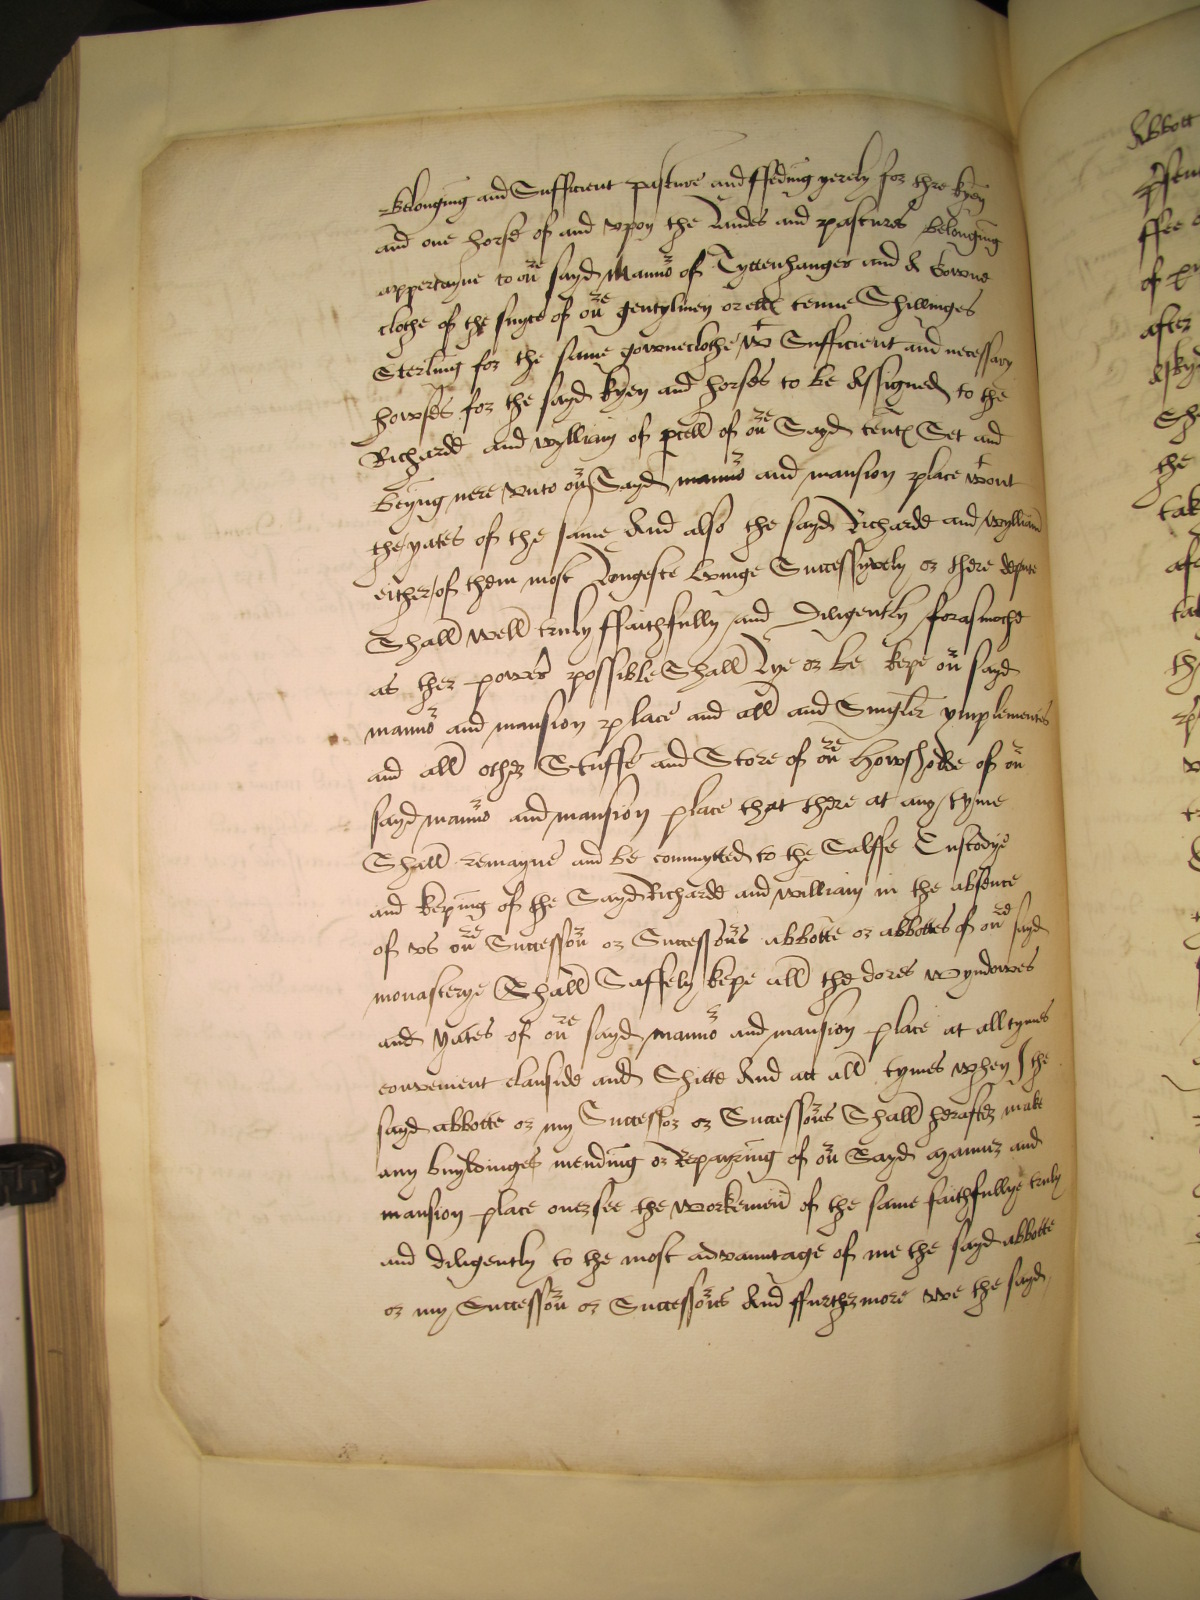 Belonging and Sufficient pasture and ffeding yerely for thre kyen
and one horse of and vpon the Landes and pastures belonging
apperteyne to our sayd Mannor of Tyttenhanger and A Gowne
clothe of the suyte of our gentylmen or ells tenne Shillinges
Sterling for the same gowneclothe wt Sufficient and necessary
howses for the sayd kyen and horses to be Assigned to the
Richard and wylliam of pcell of our Sayd tents Set and
beyng nere vnto our Sayd mannor and mansion place wtout
the yates of the same And also the sayd Richard and wylliam
either of them most Longeste lyvinge Successyvely or there depute
Shall well truly ffaithfully and Diligently forasmoche
as ther power possible Shall Lye or be kepe our sayd
mannor and mansion place and all and Singler ymplementes
and all other Stuffe and Store of our Howsholde of our
sayd mannor and mansion place that there at any tyme
Shall remayne and be commytted to the Salffe Custodye
and keping of the Sayd Richard and william in the absence
of vs our Successour or Successours abbotte or abbottes of our sayd
monasterye Shall Saffely kepe all the dores wyndowes
and yates of our sayd mannor and mansion place at all tymes
convenient clauside and Shitte And att all tymes when I the
sayd abbotte or my Successor or Successours Shall herafter make
any buyldinges mending or Repayring of our Sayd manner and
mansion place oversee the workemen of the same faithfullye truly
and diligently to the most advauntage of me the sayd abbotte
or my Successour or Successours And ffurthermore we the sayd
Abbott
after
the